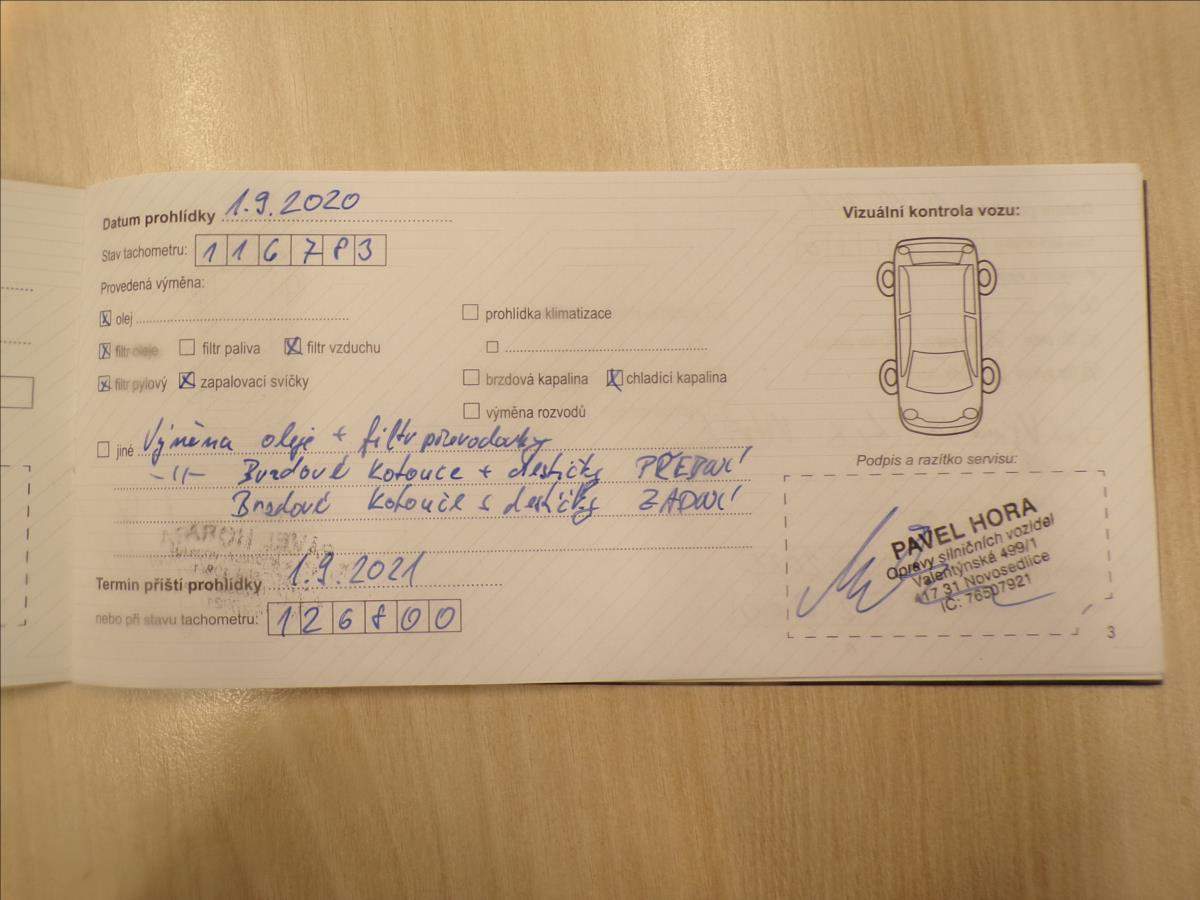 Datum prohlídky 1.9.2020
Stav tachometru: 116783
Provedená výměna:
olej
filtr oleje filtr paliva filtr vzduchu
filtr pylový zapalovací svíčky
prohlídka klimatizace
brzdová kapalina chladící kapalina
výměna rozvodů
jiné Výměna oleje + filtr převodovky
-11- Brzdové kotouče + destičky PŘEDNÍ
Brzdové kotouče s destičky ZADNÍ
Termin příští prohlídky 1.9.2021
nebo při stavu tachometru: 126800
Vizuální kontrola vozu:
Podpis a razítko servisu:
PAVEL HORA
Opravy silničních vozidel
Valentýnská 499/1
417 31 Novosedlice
IČ: 76507921
3